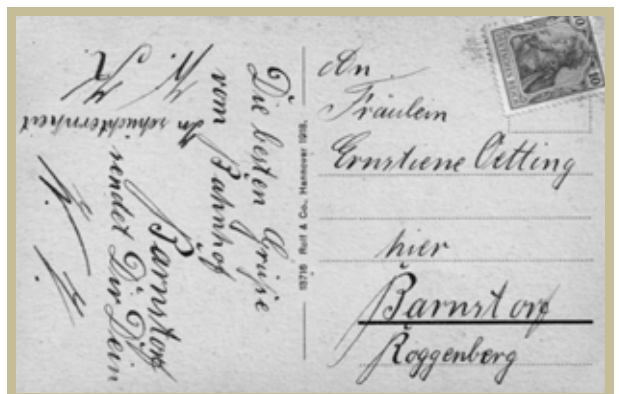 Die besten Grüße
vom Bahnhof
Barnstorf
sendet Dir Dein
In schüchternheit
Rolf & Co., Hannover 1918.
An
Fräulein
Ernstiene Oetting
hier
Barnstorf
Roggenberg
10